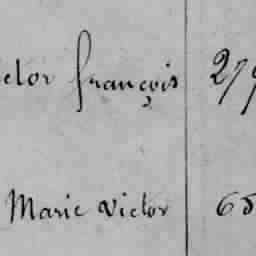 ictor françois 279
Marie Victor 65